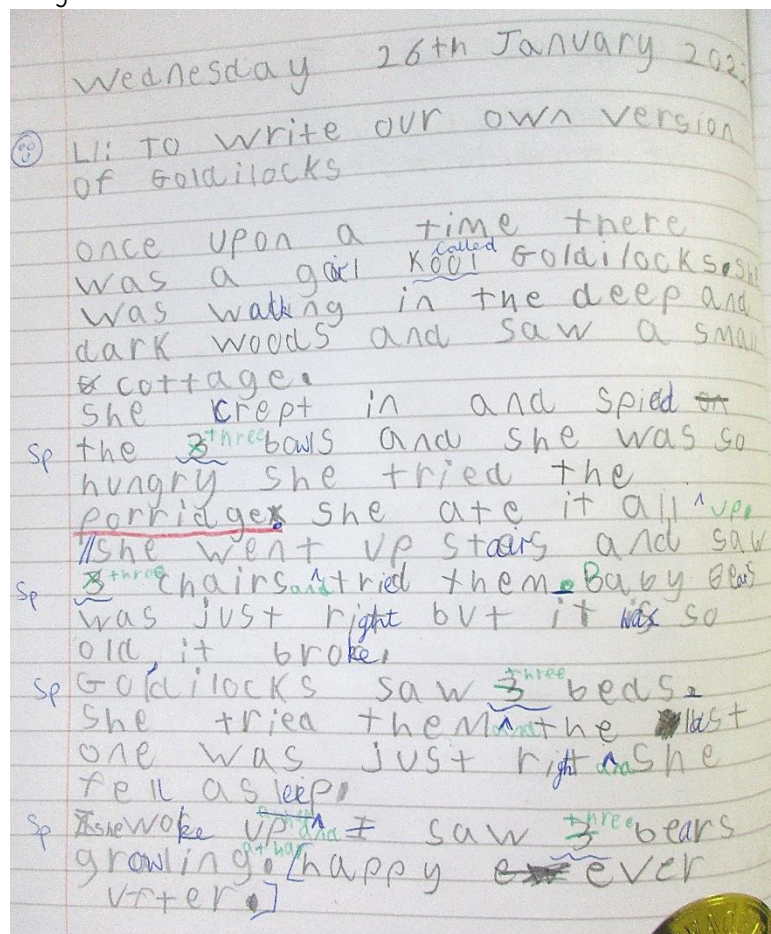 Wednesday 26th January 202
LI: To write our own version
of Goldilocks
once upon a time there
was a girl Kool called Goldilocks. she
was walking in the deep and
dark woods and saw a small
cottage.
she crept in and spied on
Sp the 3 three bowls and she was so
hungry she tried the
porridge. she ate it all ^ up.
// she went up stairs and saw
Sp 3 three chairs and ^ tried them. Baby Bears
was just right but it was so
old, it broke.
Sp Goldilocks saw 3 three beds.
She tried them ^ and the last
one was just right ^ and she
fell asleep.
Sp she woke up ^ and I saw 3 three bears
growling. at her [happy ever
vfter.]